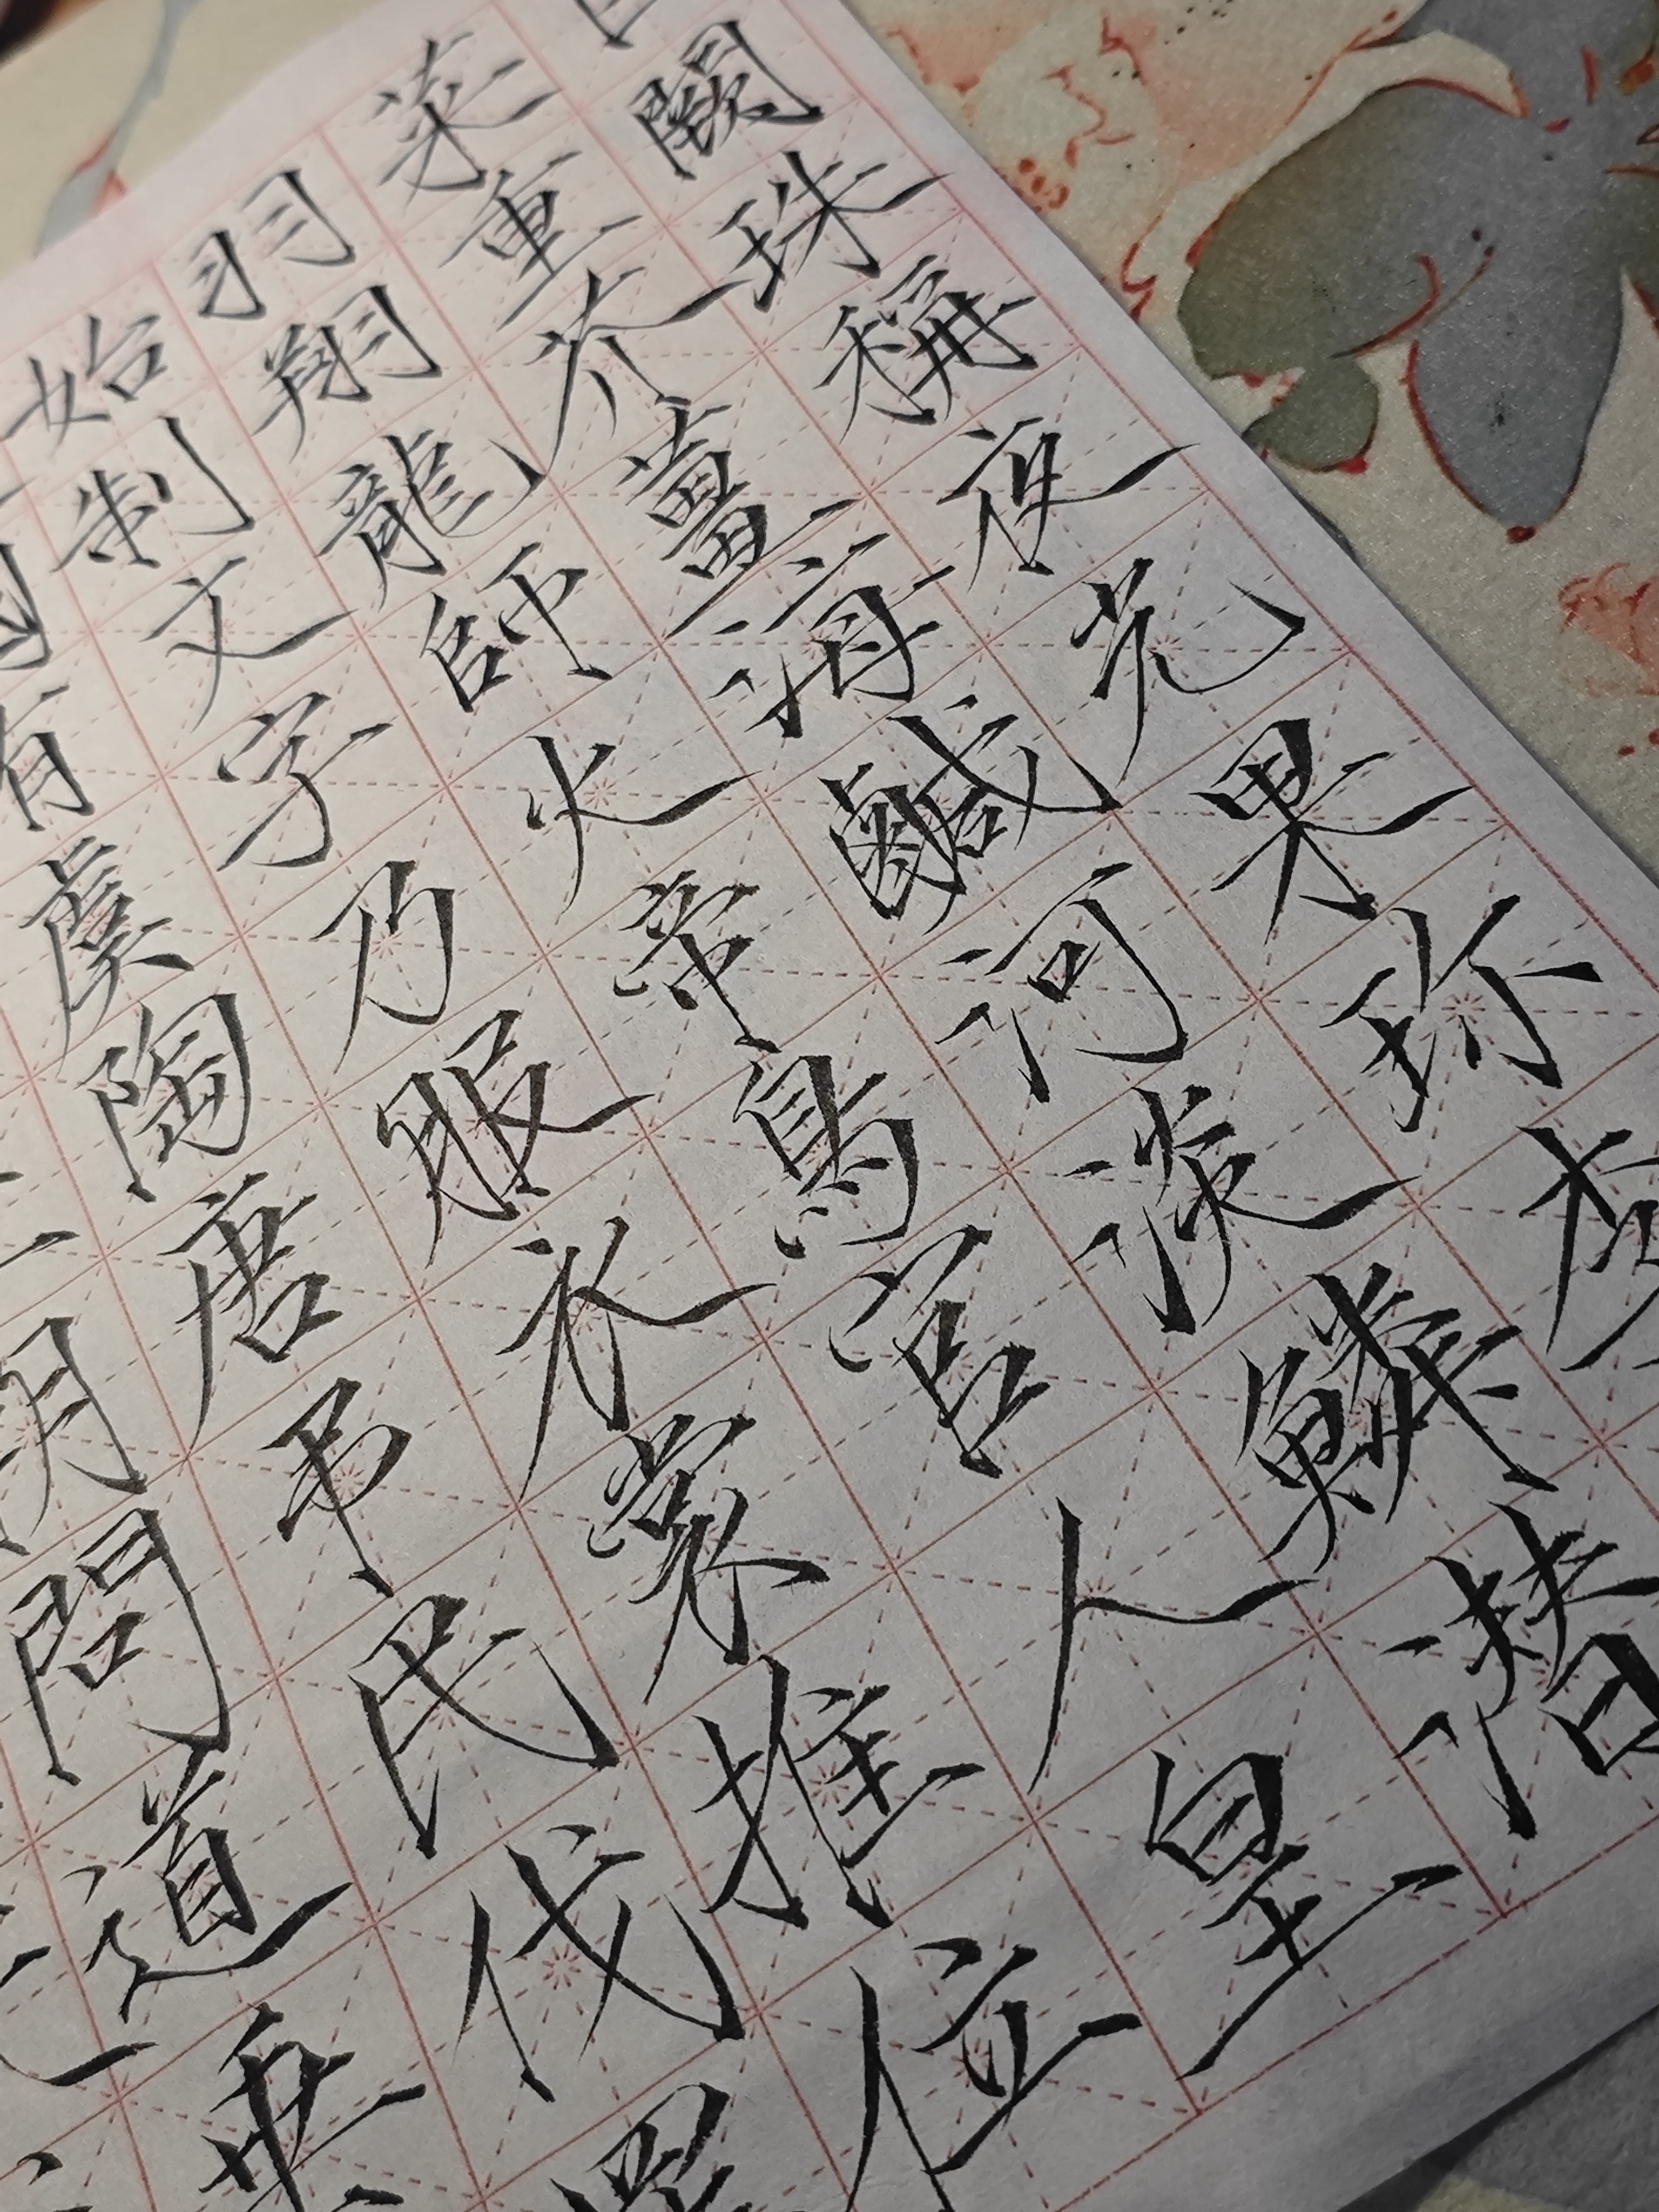 闕珠稱夜光果珎李
菜重芥薑海鹹河淡鱗潜
羽翔龍師火帝鳥官人皇
始制文字乃服衣裳推位
國有虞陶唐弔民伐罪
朝問道垂